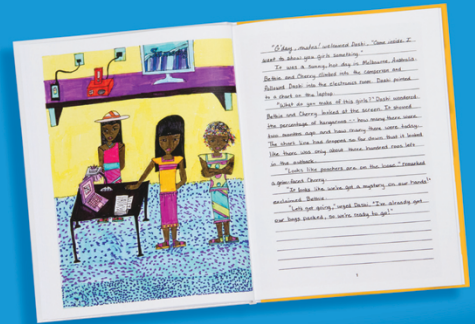 "G'day, mates!" welcomed Deski, "Come inside. I
want to show you girls something."
It was a sunny, hot day in Melbourne, Australia.
Bettina and Cherry climbed into the campervan and
followed Deski into the electronics room. Deski pointed
to a chart on the laptop.
"What do you make of this girls?" Deski wondered.
Bettina and Cherry looked at the screen. It showed
the percentage of kangaroos – how many there were
two months ago and how many there were today.
The chart line had dropped so far down that it looked
like there was only about three hundred roos left
in the outback.
"Looks like poachers are on the loose"
a Cherry.
"It looks like we've got a mystery on our hands!"
exclaimed Bettina.
"Let's get going," urged Deski. "I've already got
our bags packed, so we're ready to go!"
1